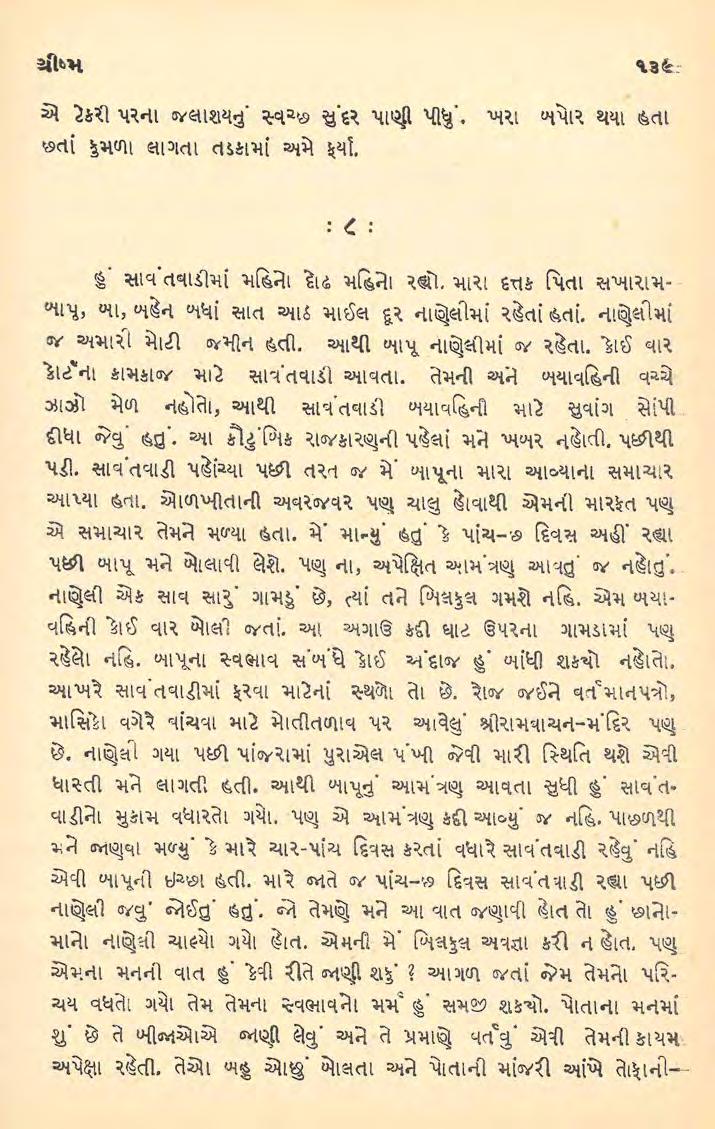 ગ્રીષ્મ
૧૩૯
એ ટેકરી પરના જલાશયનું સ્વચ્છ સુંદર પાણી પીધું. ખરા બપોર થયા હતા
છતાં કુમળા લાગતા તડકામાં અમે ફર્યા.
: ૮ :
હું સાવંતવાડીમાં મહિનો દોઢ મહિનો રહ્યો. મારા દત્તક પિતા સખારામ-
બાપૂ, બા, બહેન બધાં સાત આઠ માઈલ દૂર નાણેલીમાં રહેતાં હતાં. નાણેલીમાં
જ અમારી મોટી જમીન હતી. આથી બાપૂ નાણેલીમાં જ રહેતા. કોઈ વાર
કોર્ટના કામકાજ માટે સાવંતવાડી આવતા. તેમની અને બયાવહિની વચ્ચે
ઝાઝો મેળ નહોતો, આથી સાવંતવાડી બયાવહિની માટે સુવાંગ સોંપી
દીધા જેવું હતું. આ કૌટુંબિક રાજકારણની પહેલાં મને ખબર નહોતી. પછીથી
પડી. સાવંતવાડી પહોંચ્યા પછી તરત જ મેં બાપૂના મારા આવ્યાના સમાચાર
આપ્યા હતા. ઓળખીતાની અવરજવર પણ ચાલુ હોવાથી એમની મારફત પણ
એ સમાચાર તેમને મળ્યા હતા. મેં માન્યું હતું કે પાંચ-છ દિવસ અહીં રહ્યા
પછી બાપૂ મને બોલાવી લેશે. પણ ના, અપેક્ષિત આમંત્રણ આવતું જ નહોતું.
નાણેલી એક સાવ સારું ગામડું છે, ત્યાં તને બિલકુલ ગમશે નહિ. એમ બયા-
વહિની કોઈ વાર બોલી જતાં. આ અગાઉ કદી ઘાટ ઉપરના ગામડામાં પણ
રહેલો નહિ. બાપૂના સ્વભાવ સંબંધે કોઈ અંદાજ હું બાંધી શકયો નહોતો.
આખરે સાવંતવાડીમાં ફરવા માટેનાં સ્થળો તો છે. રોજ જઈને વર્તમાનપત્રો,
માસિકો વગેરે વાંચવા માટે મોતીતળાવ પર આવેલું શ્રીરામવાચન-મંદિર પણ
છે. નાણેલી ગયા પછી પાંજરામાં પુરાએલ પંખી જેવી મારી સ્થિતિ થશે એવી
ધાસ્તી મને લાગતી હતી. આથી બાપૂનું આમંત્રણ આવતા સુધી હું સાવંત-
વાડીનો મુકામ વધારતો ગયો. પણ એ આમંત્રણ કદી આવ્યું જ નહિ. પાછળથી
મને જાણવા મળ્યું કે મારે ચાર-પાંચ દિવસ કરતાં વધારે સાવંતવાડી રહેવું નહિ
એવી બાપૂની ઇચ્છા હતી. મારે જાતે જ પાંચ-છ દિવસ સાવંતવાડી રહ્યા પછી
નાણેલી જવું જોઈતું હતું. જો તેમણે મને આ વાત જણાવી હોત તો હું છાનો-
માનો નાણેલી ચાલ્યો ગયો હોત. એમની મેં બિલકુલ અવજ્ઞા કરી ન હોત. પણ
એમના મનની વાત હું કેવી રીતે જાણી શકું ? આગળ જતાં જેમ તેમનો પરિ-
ચય વધતો ગયો તેમ તેમના સ્વભાવનો મર્મ હું સમજી શકયો. પોતાના મનમાં
શું છે તે બીજાઓએ જાણી લેવું અને તે પ્રમાણે વર્તવું એવી તેમની કાયમ
અપેક્ષા રહેતી. તેઓ બહુ ઓછું બોલતા અને પોતાની માંજરી આંખે તોફાની—